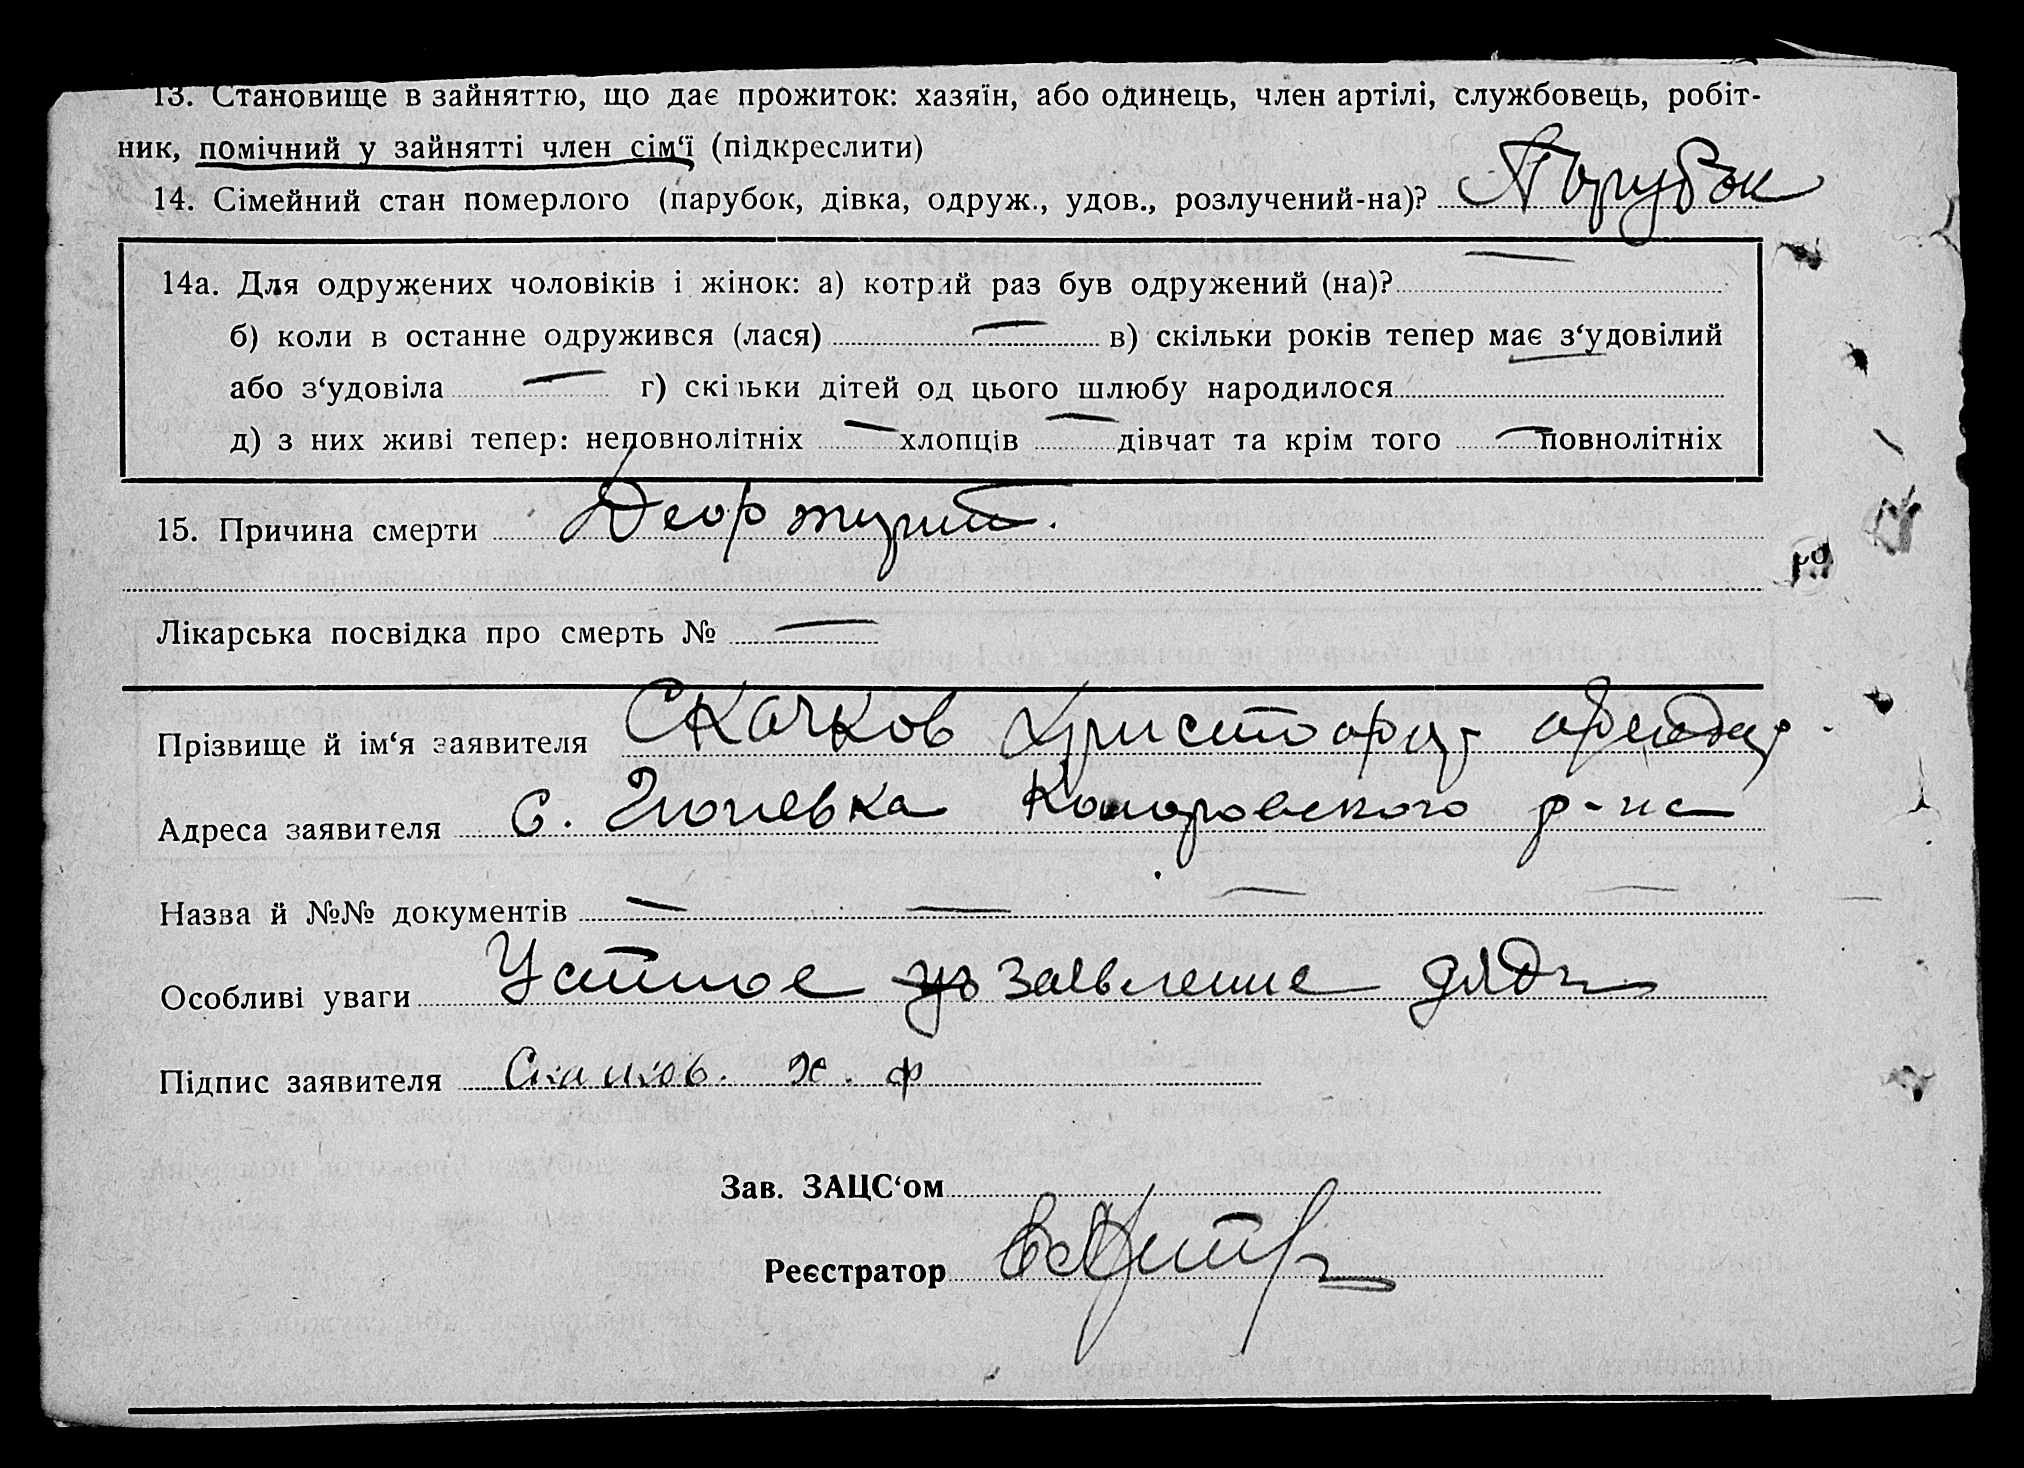 13. Становище в зайняттю, що дає прожиток: хазяїн, або одинець, член артілі, службовець, робіт-
ник, помічний у зайнятті член сім‘ї (підкреслити)
14. Сімейний стан померлого (парубок, дівка, одруж., удов., розлучений-на)? Парубок
14а. Для одружених чоловіків і жінок: а) котрий раз був одружений (на)? —
б) коли в останне одружився (лася) — в) скільки років тепер має з‘удовілий
або з‘удовіла — г) скільки дітей од цього шлюбу народилося
д) з них живі тепер: неповнолітніх — хлопців — дівчат та крім того — повнолітніх
15. Причина смерти
Лікарська посвідка про смерть № —
Прізвище й ім‘я заявителя Скачков Христофор
Адреса заявителя с. Комаровского р-на
Назва й №№ документів — — — —
Особливі уваги Устное заявление дяди
Підпис заявителя Скачков. Х. Ф
Зав. ЗАЦС‘ом
Реєстратор